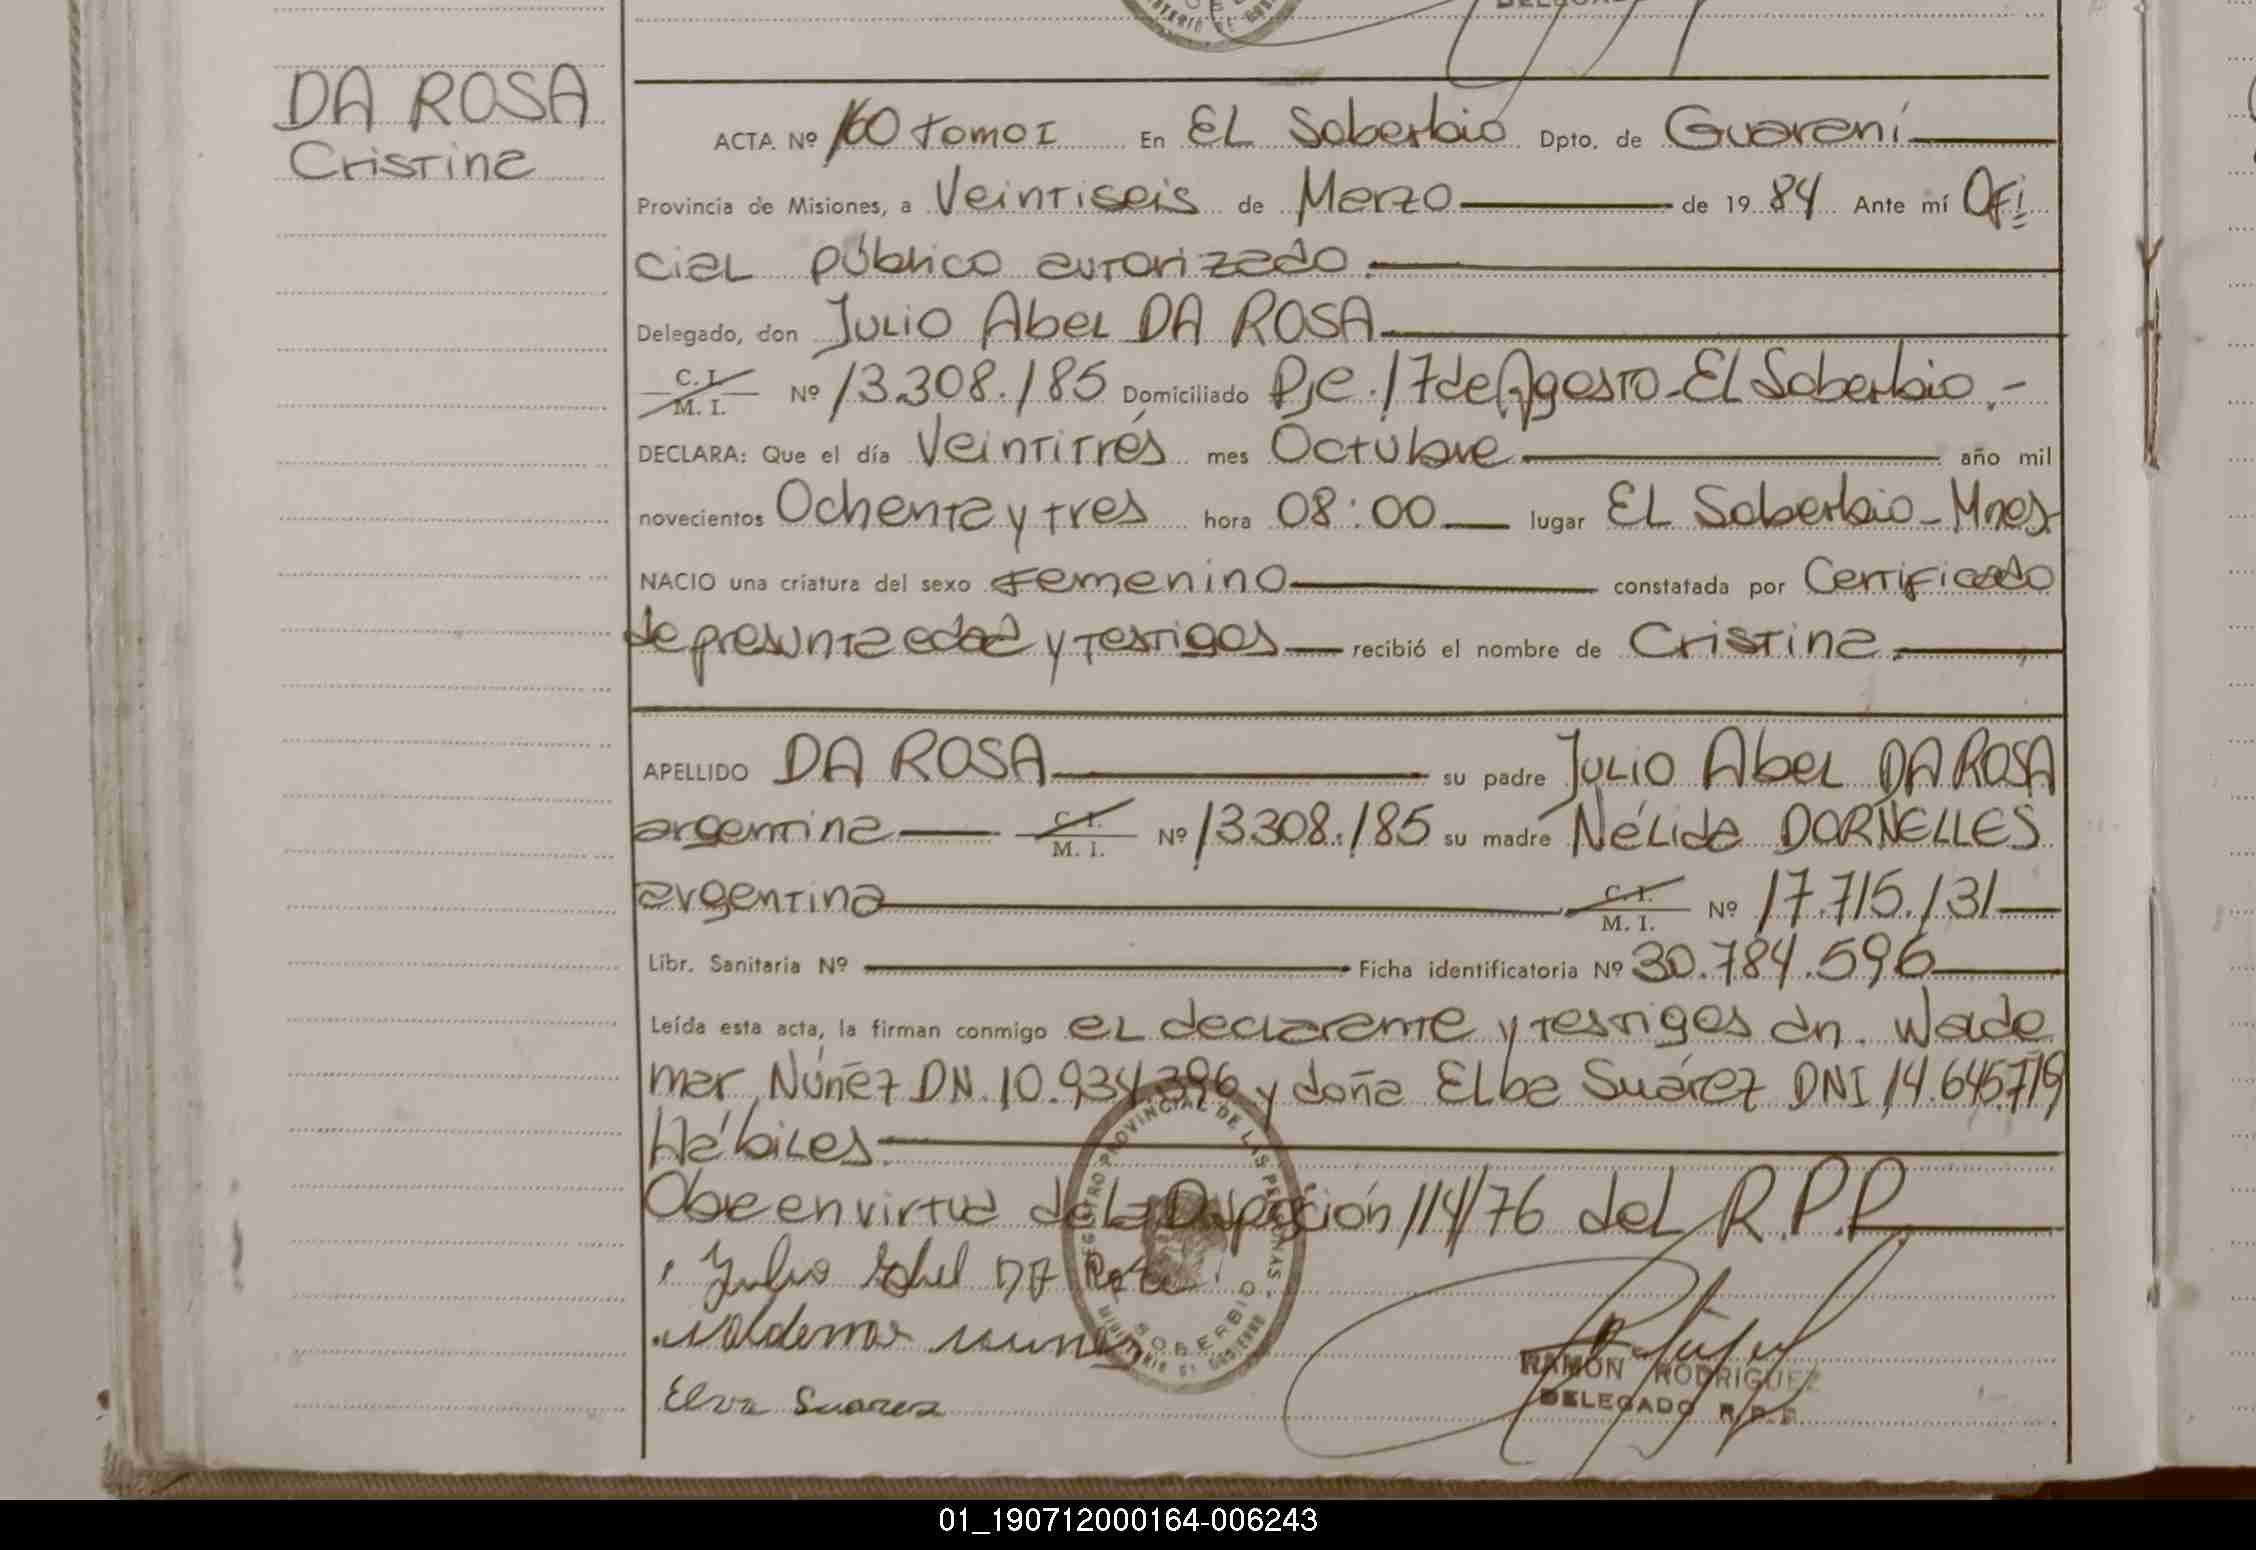 DELEGAD
MINISTERIO DE GOB
DA ROSA
Cristina
ACTA Nº 160 tomo I En El Soberbio Dpto. de Guaraní
Provincia de Misiones, a Veintiseis de Marzo de 1984 Ante mí Ofi
cial público autorizado.
Delegado, don Julio Abel DA ROSA
C. I. M. I. Nº 13.308.185 Domiciliado Pje. 17 de Agosto - El Soberbio.-
DECLARA: Que el día Veintitrés mes Octubre año mil
novecientos Ochenta y tres hora 08:00 lugar El Soberbio - Mnes
NACIO una criatura del sexo Femenino constatada por Certificado
de presunta edad y testigos recibió el nombre de Cristina.
APELLIDO DA ROSA su padre Julio Abel DA ROSA
argentina C. I. M. I. Nº 13.308.185 su madre Nélida DORNELLES
argentina C. I. M. I. Nº 17.715.131
Libr. Sanitaria Nº Ficha identificatoria Nº 30.784.596
Leída esta acta, la firman conmigo el declarante y testigos dn. Walde
mar Núñez DN. 10.934.396 y doña Elba Suárez DNI 14.645.719
Hábiles.
Obre en virtud de la Disposición 114/76 del R.P.P.
Julio Abel DA Rosa
Waldemar Nunez
Elva Suarez
REGISTRO PROVINCIAL DE LAS PERSONAS
SOBERBIO
MINISTERIO DE GOBIERNO
RAMON RODRIGUEZ
DELEGADO R.P.P.
01_190712000164-006243